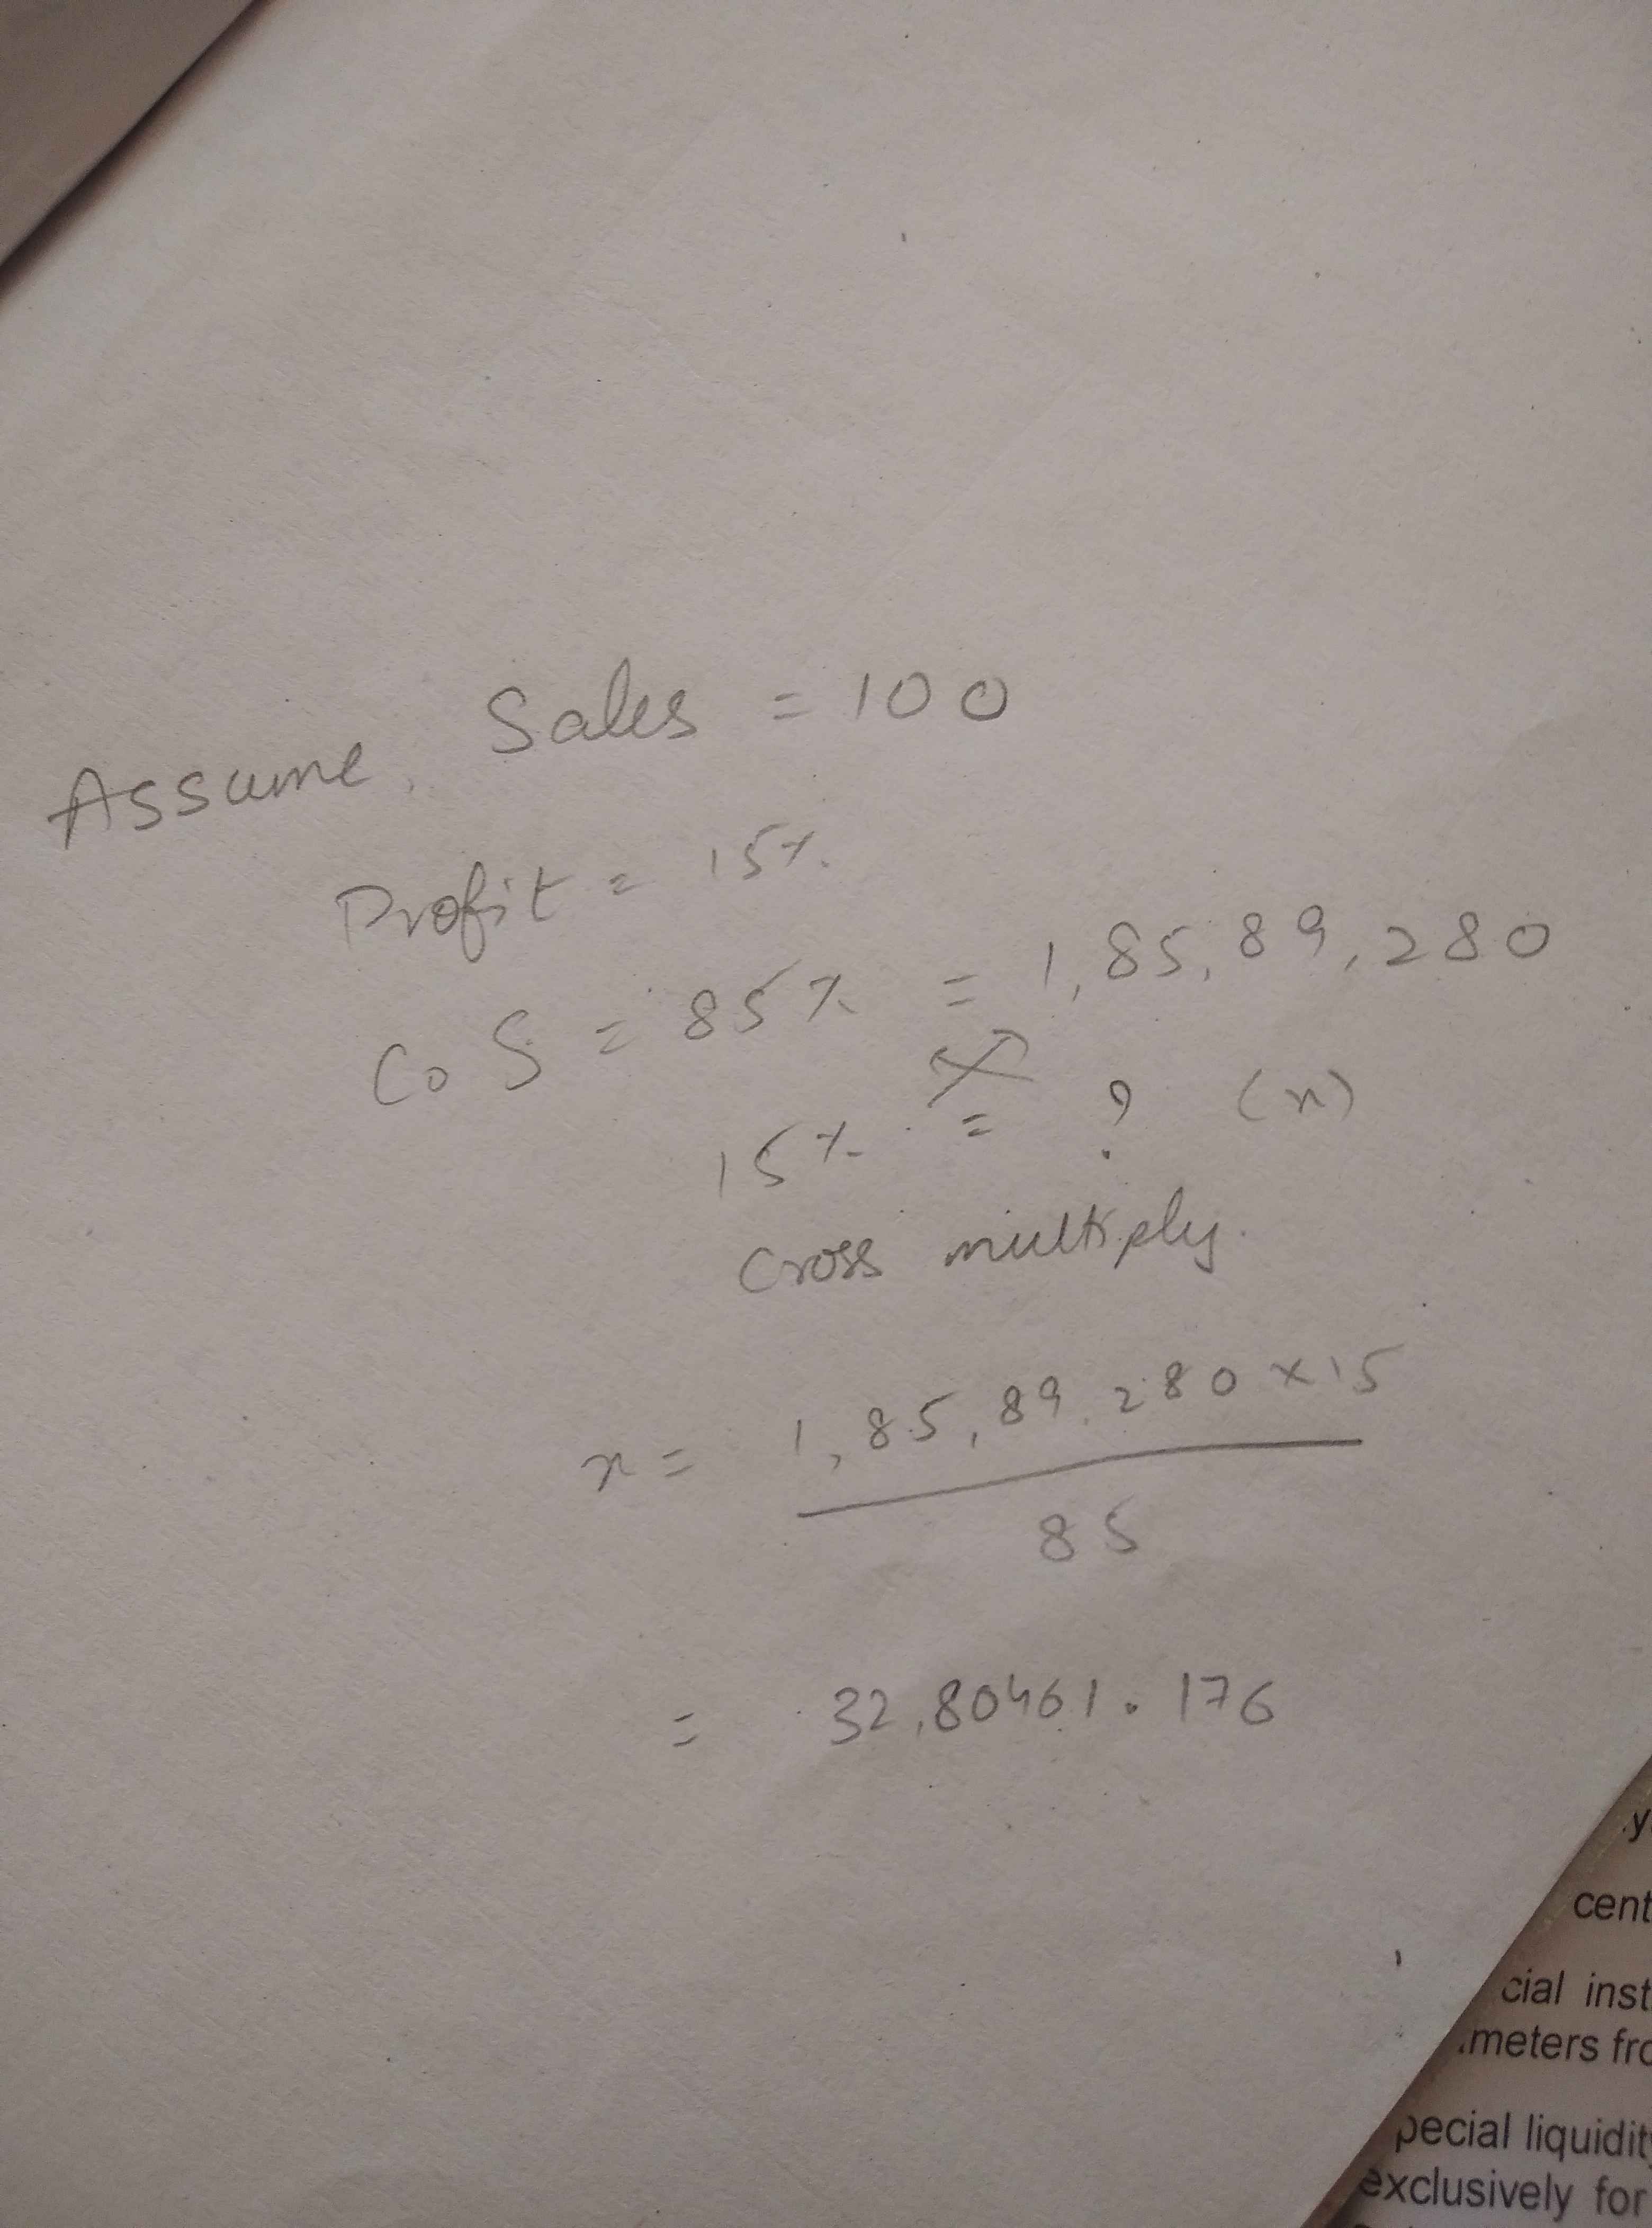 Assume, Sales = 100
Profit = 15%
CoS = 85% = 1,85,89,280
15% = ? (x)
Cross multiply.
x = 1,85,89,280 x 15
85
= 32,80461.176
cent
cial inst
meters fro
pecial liquidity
exclusively for